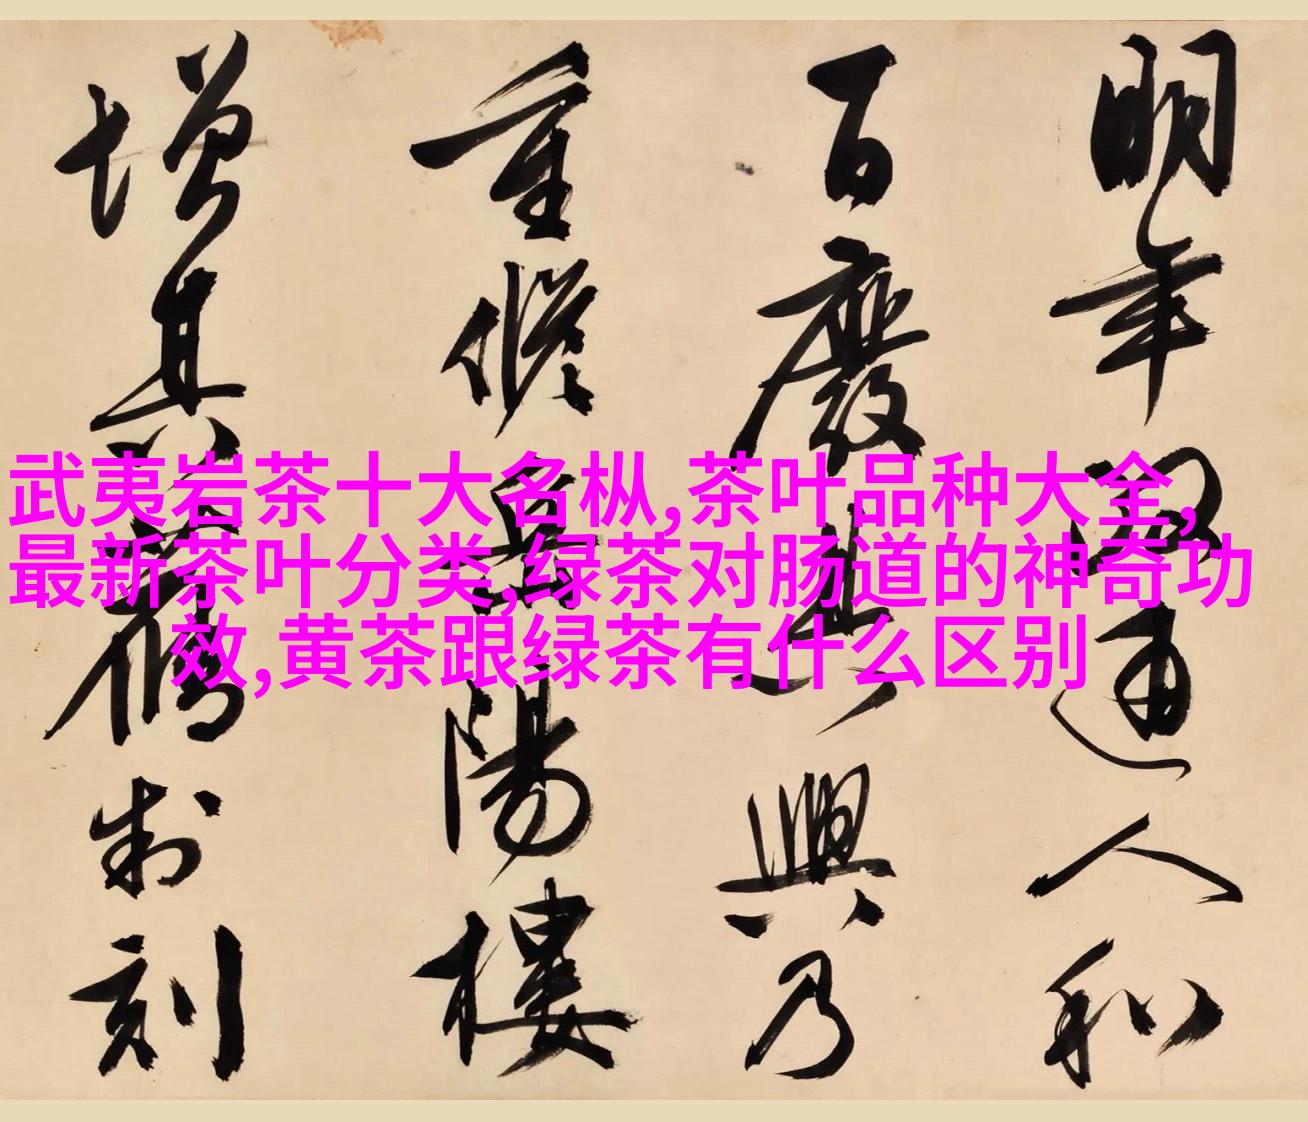 明年政通人和
百廢具興乃
重修岳陽樓
增其舊制刻
武夷岩茶十大名枞,茶叶品种大全,
最新茶叶分类,绿茶对肠道的神奇功
效,黄茶跟绿茶有什么区别